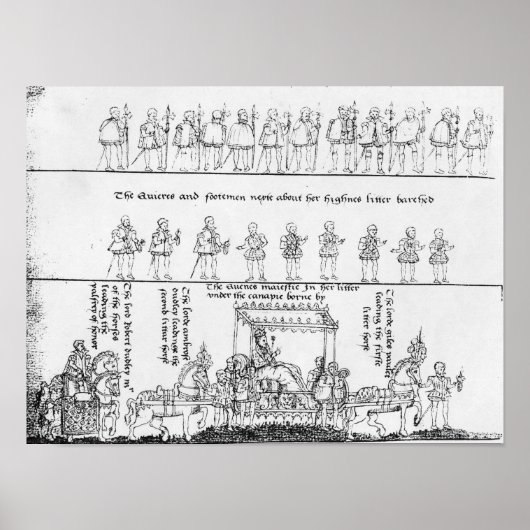 The Quieres and footemen nexte about her highnes litter barehed
The Quenes maiestie In her litter
under the canapie borne by
The lord Robert dudley mr
of the horses
leading the
palfrey of honor
The lorde ambrose
dudley leadinge the
second littur horse
The lorde giles paulet
leading the firste
litter horse